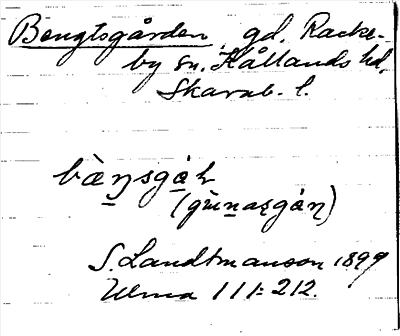 Bengtsgården, gd, Racke-
by sn. Kållands hd,
Skarab. l.
bàŋsgáɫ
(gùnasgáɳ)
S. Landtmanson 1899
Ulma 111:212.